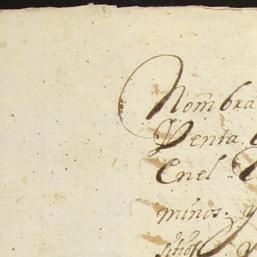 Nombra
Venta
En el
minos, y
sitios y